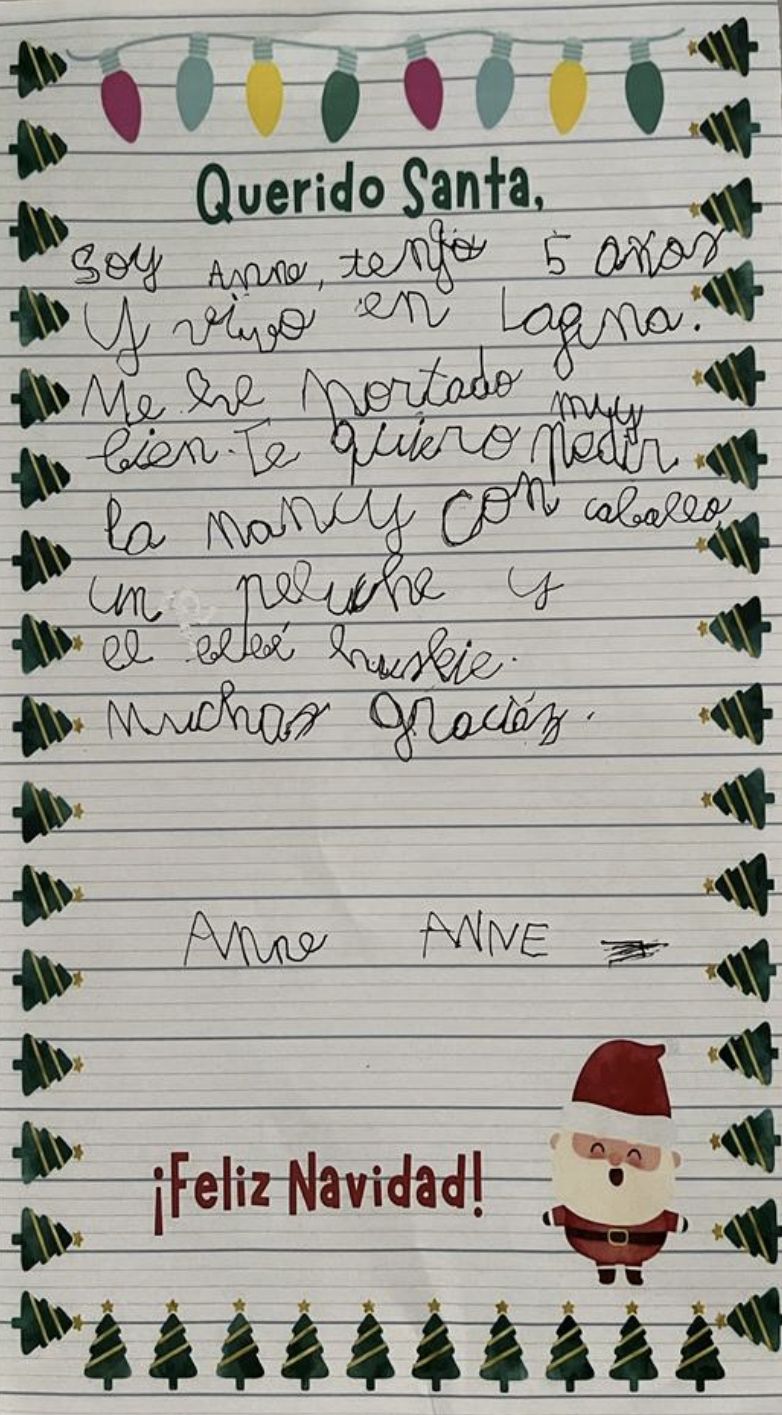 Querido Santa,
Soy Anne, tengo 5 años
y vivo en Laguna.
Me he portado muy
bien. Te quiero pedir
la Nancy con caballo,
un peluche y
el bebé huskie.
Muchas gracias.
Anne ANNE
¡Feliz Navidad!